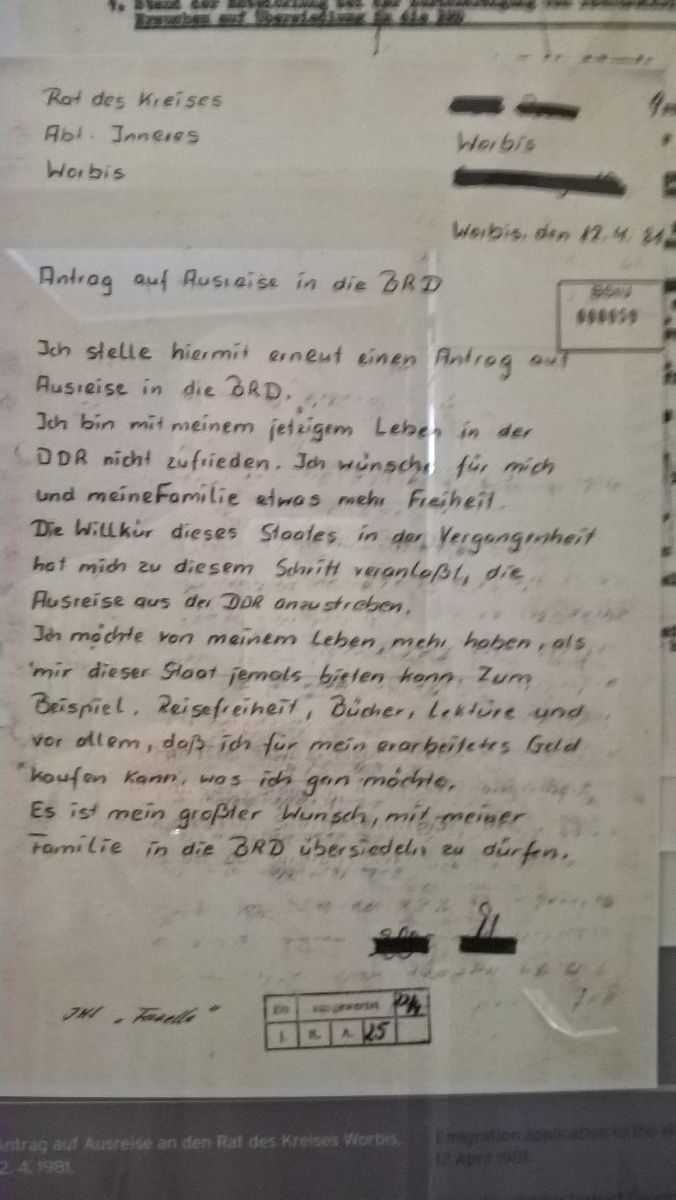 1. Stand der
Ersuchen auf Übersiedlung in die BRD
Rat des Kreises
Abt. Inneres
Worbis
Worbis
Worbis, den 12.4.81
Antrag auf Ausreise in die BRD
BStU
Ich stelle hiermit erneut einen Antrag auf
Ausreise in die BRD.
Ich bin mit meinem jetzigem Leben in der
DDR nicht zufrieden. Ich wünsche für mich
und meine Familie etwas mehr Freiheit.
Die Willkür dieses Staates in der Vergangenheit
hat mich zu diesem Schritt veranlaßt, die
Ausreise aus der DDR anzustreben.
Ich möchte von meinem Leben mehr haben, als
mir dieser Staat jemals bieten kann. Zum
Beispiel, Reisefreiheit, Bücher, Lektüre und
vor allem, daß ich für mein erarbeitetes Geld
kaufen kann, was ich gern möchte.
Es ist mein größter Wunsch, mit meiner
Familie in die BRD übersiedeln zu dürfen.
25
Antrag auf Ausreise an den Rat des Kreises Worbis,
12. 4. 1981.
Emigration application to the
12 April 1981.